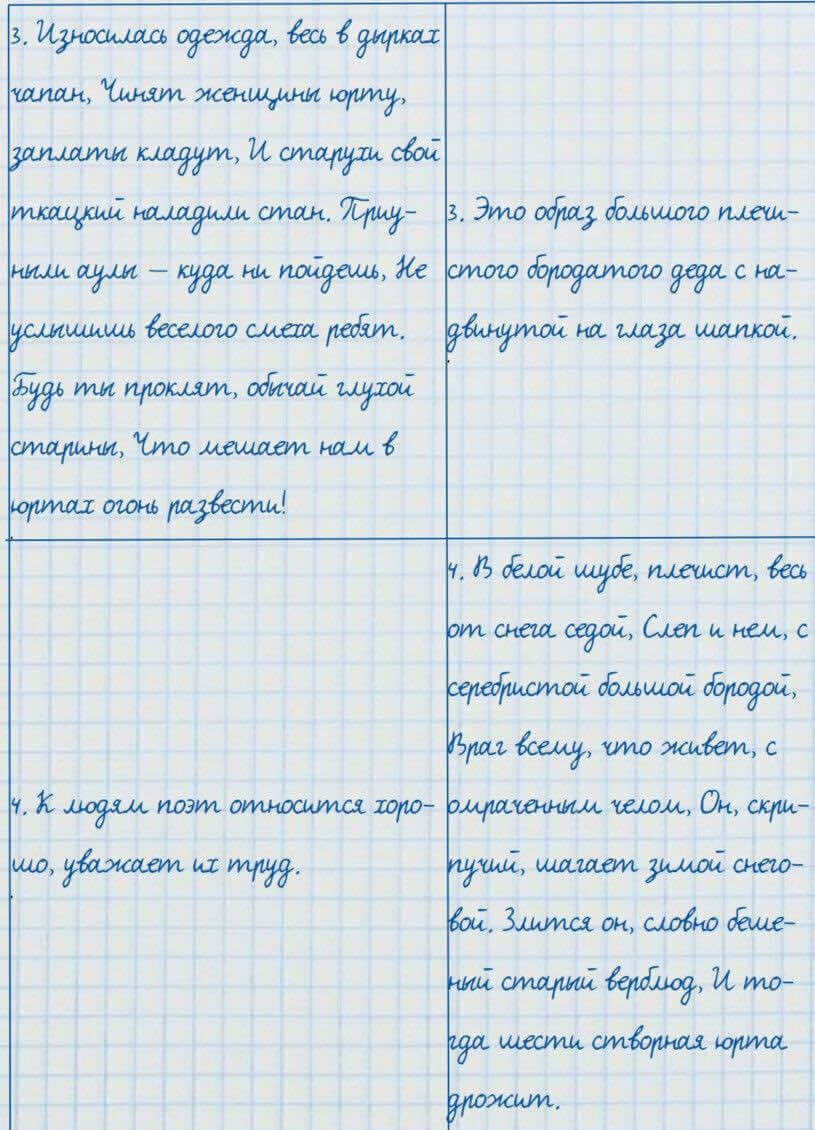 3. Износилась одежда, весь в дырках
чапан, Чинят женщины юрту,
заплаты кладут, И старухи свой
ткацкий наладили стан. Приу-
ныли аулы — куда ни пойдешь, Не
услышишь веселого смеха ребят.
Будь ты проклят, обычай глухой
старины, Что мешает нам в
юртах огонь развести!
3. Это образ большого плечи-
стого бородатого деда с на-
двинутой на глаза шапкой.
4. К людям поэт относится хоро-
шо, уважает их труд.
4. В белой шубе, плечист, весь
от снега седой, Слеп и нем, с
серебристой большой бородой,
Враг всему, что живет, с
омраченным челом, Он, скри-
пучий, шагает зимой снего-
вой. Злится он, словно беше-
ный старый верблюд, И то-
гда шести створная юрта
дрожит.